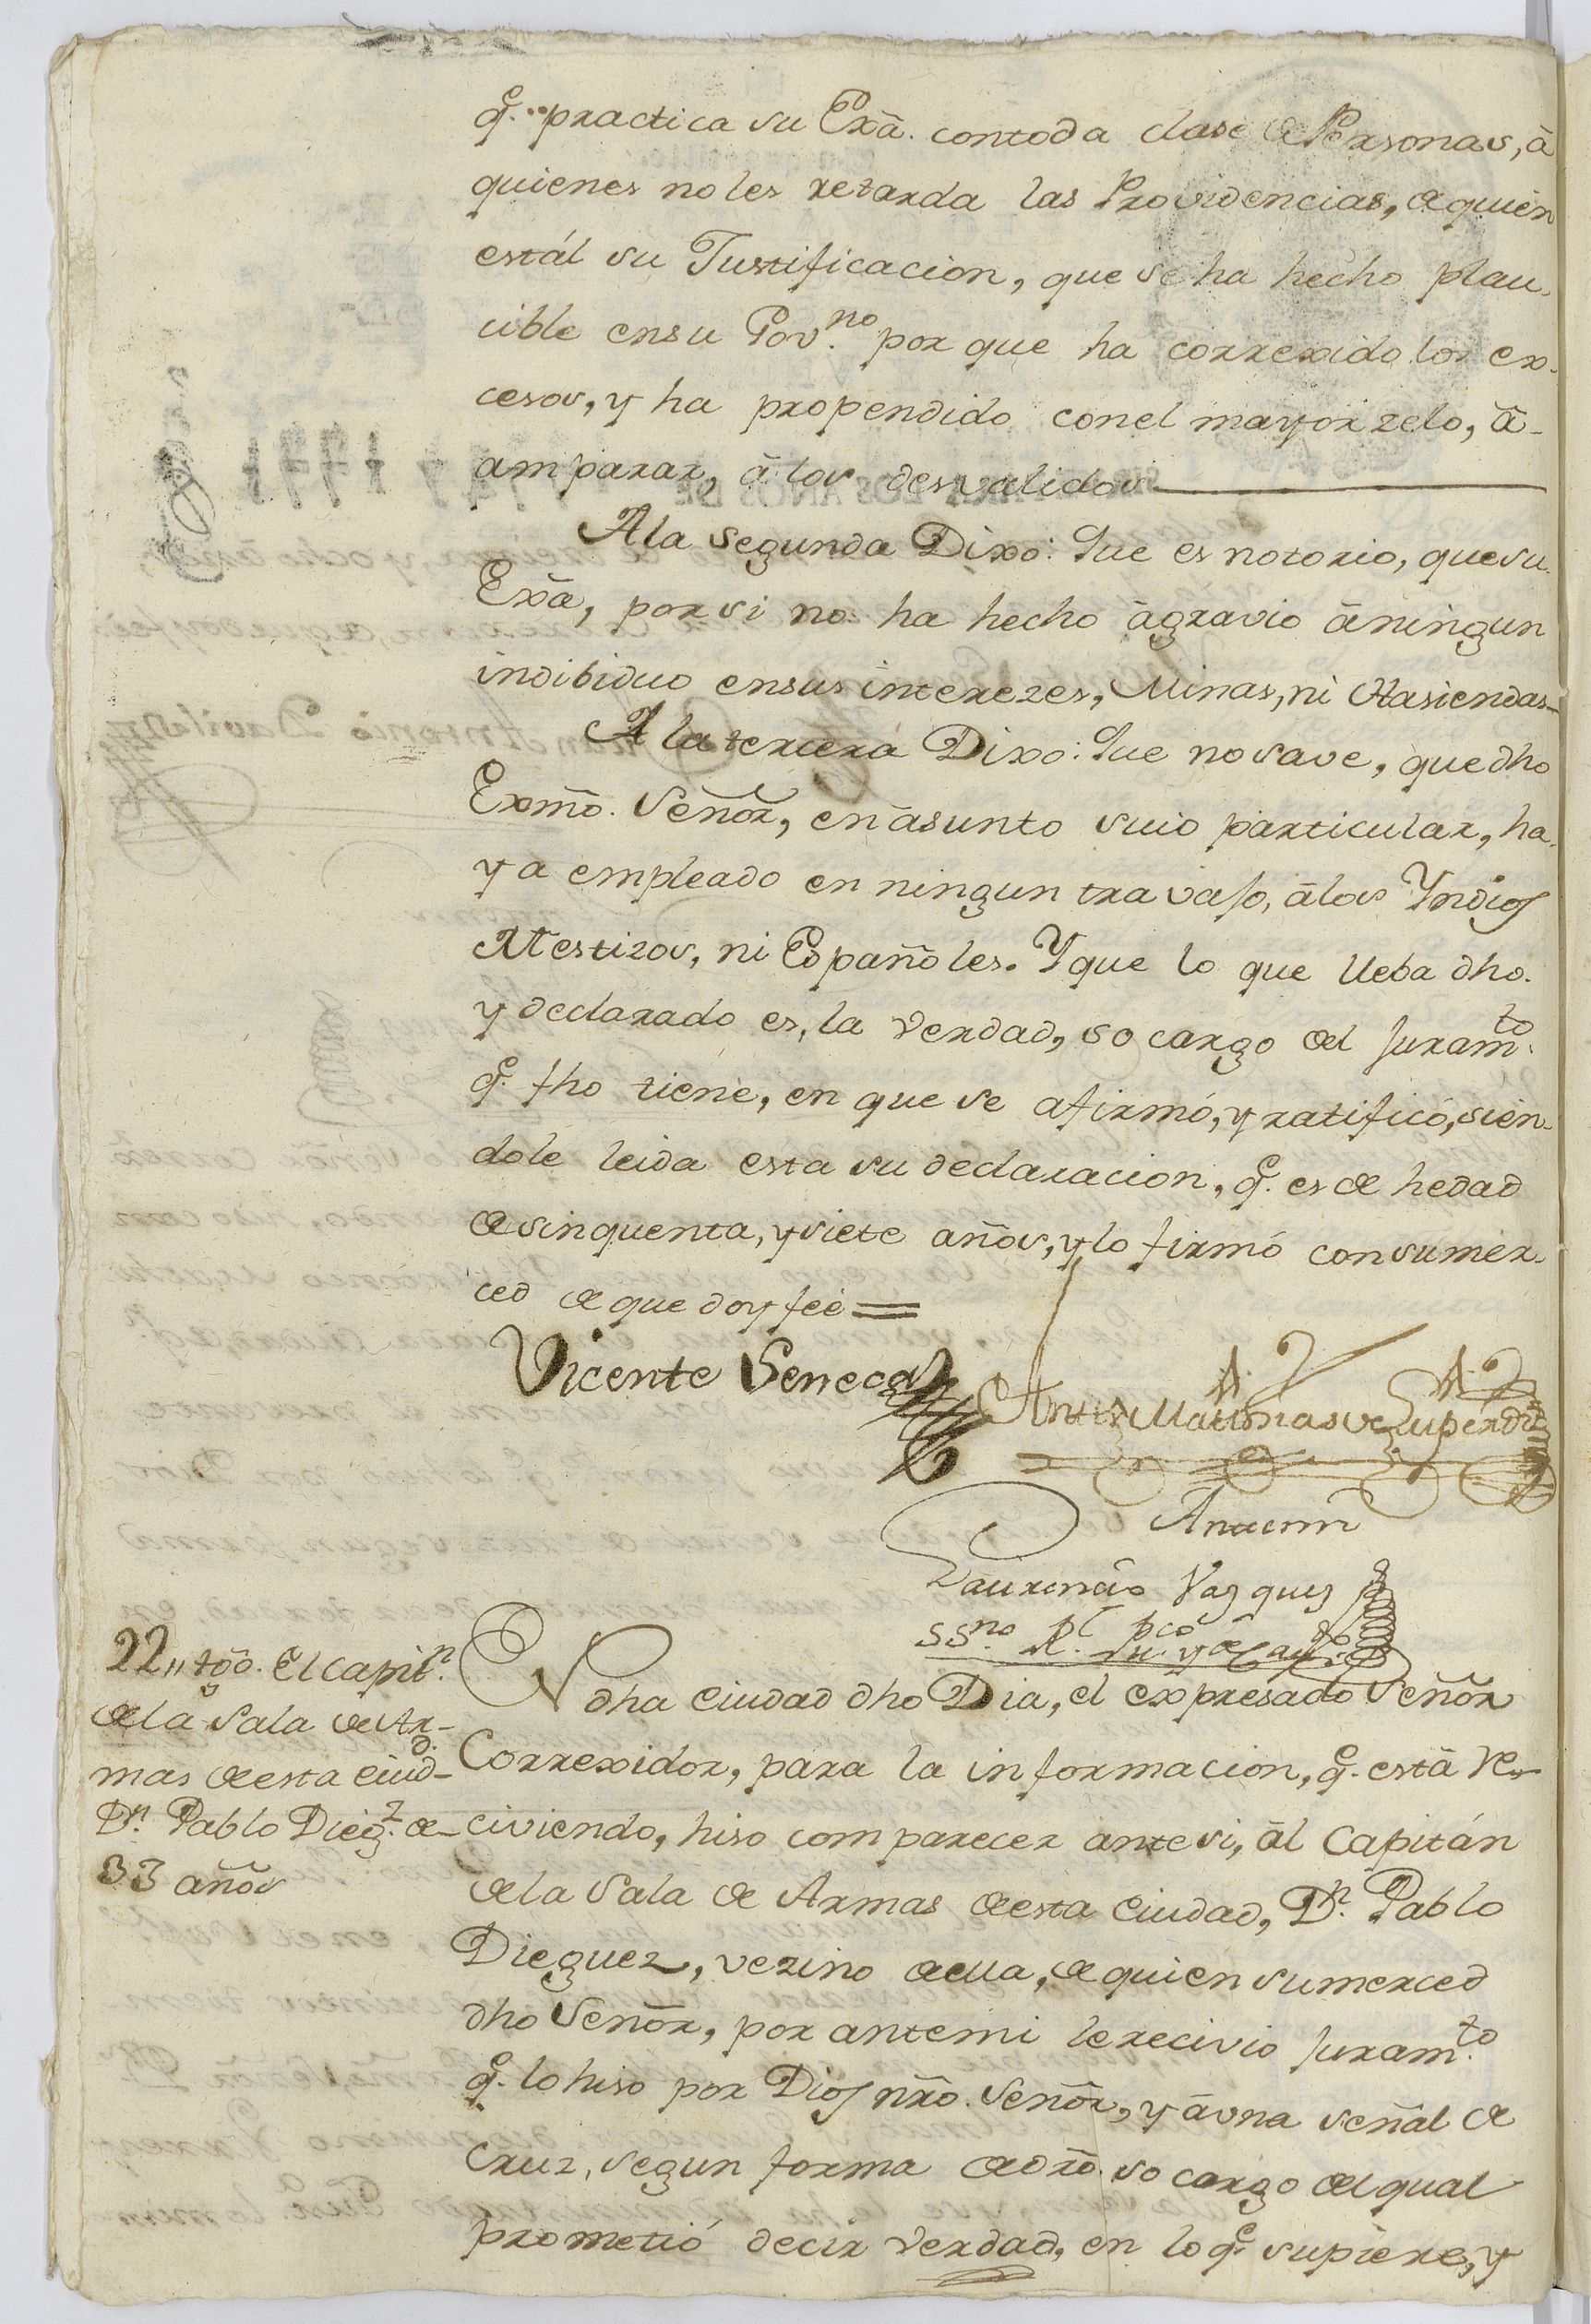 q.e practica su Exã. contoda clase de Personas, â
quienes no les retarda las Providencias, de quien
estál su Justificacion, que se ha hecho plau-
cible ensu Gov.no por que ha correxido los ex-
cesos, y ha propendido conel mayor zelo, â
amparar, â los desvalidos
Ala segunda Dixo: Que es notorio, que su
Exã, por si no ha hecho âgravio âningun
indibiduo ensus interezes, Minas, ni Hasiendas
A la tercera Dixo: Que no save, que dho
Exmõ. Señor, en âsunto suio particular, ha-
ya empleado en ningun travajo, âlos Yndios
Mestizos, ni Españoles. Y que lo que lleba dho.
y declarado es, la verdad, so cargo del juram.to
q.e fho tiene, en que se afirmó, y ratificó, sien-
dole leida esta su declaracion, q.e es de hedad
de sinquenta, y siete años, y lo firmó consumer-
ced de que doy feé =
Vicente Seneca
Antemi
Laurencio Vasques
ss.no R.l pco
22,, tgõ. El capit.n
dela Sala de Ar-
mas de esta ciud.d
D.n Pablo Dieg.z de
33 años
EN dha Ciudad dho Dia, el expresado Señor
Correxidor, para la informacion, q.e está re-
civiendo, hiso comparecer ante si, âl Capitán
dela Sala de Armas de esta Ciudad, D.n Pablo
Dieguez, vezino de ella, de quien su merced
dho Señor, por antemi le recivio juram.to
q.e lo hiso por Dios nrõ. Señor, y âuna señal de
Cruz, segun forma de drõ. so cargo del qual
prometió decir verdad, en lo q.e supiere, y